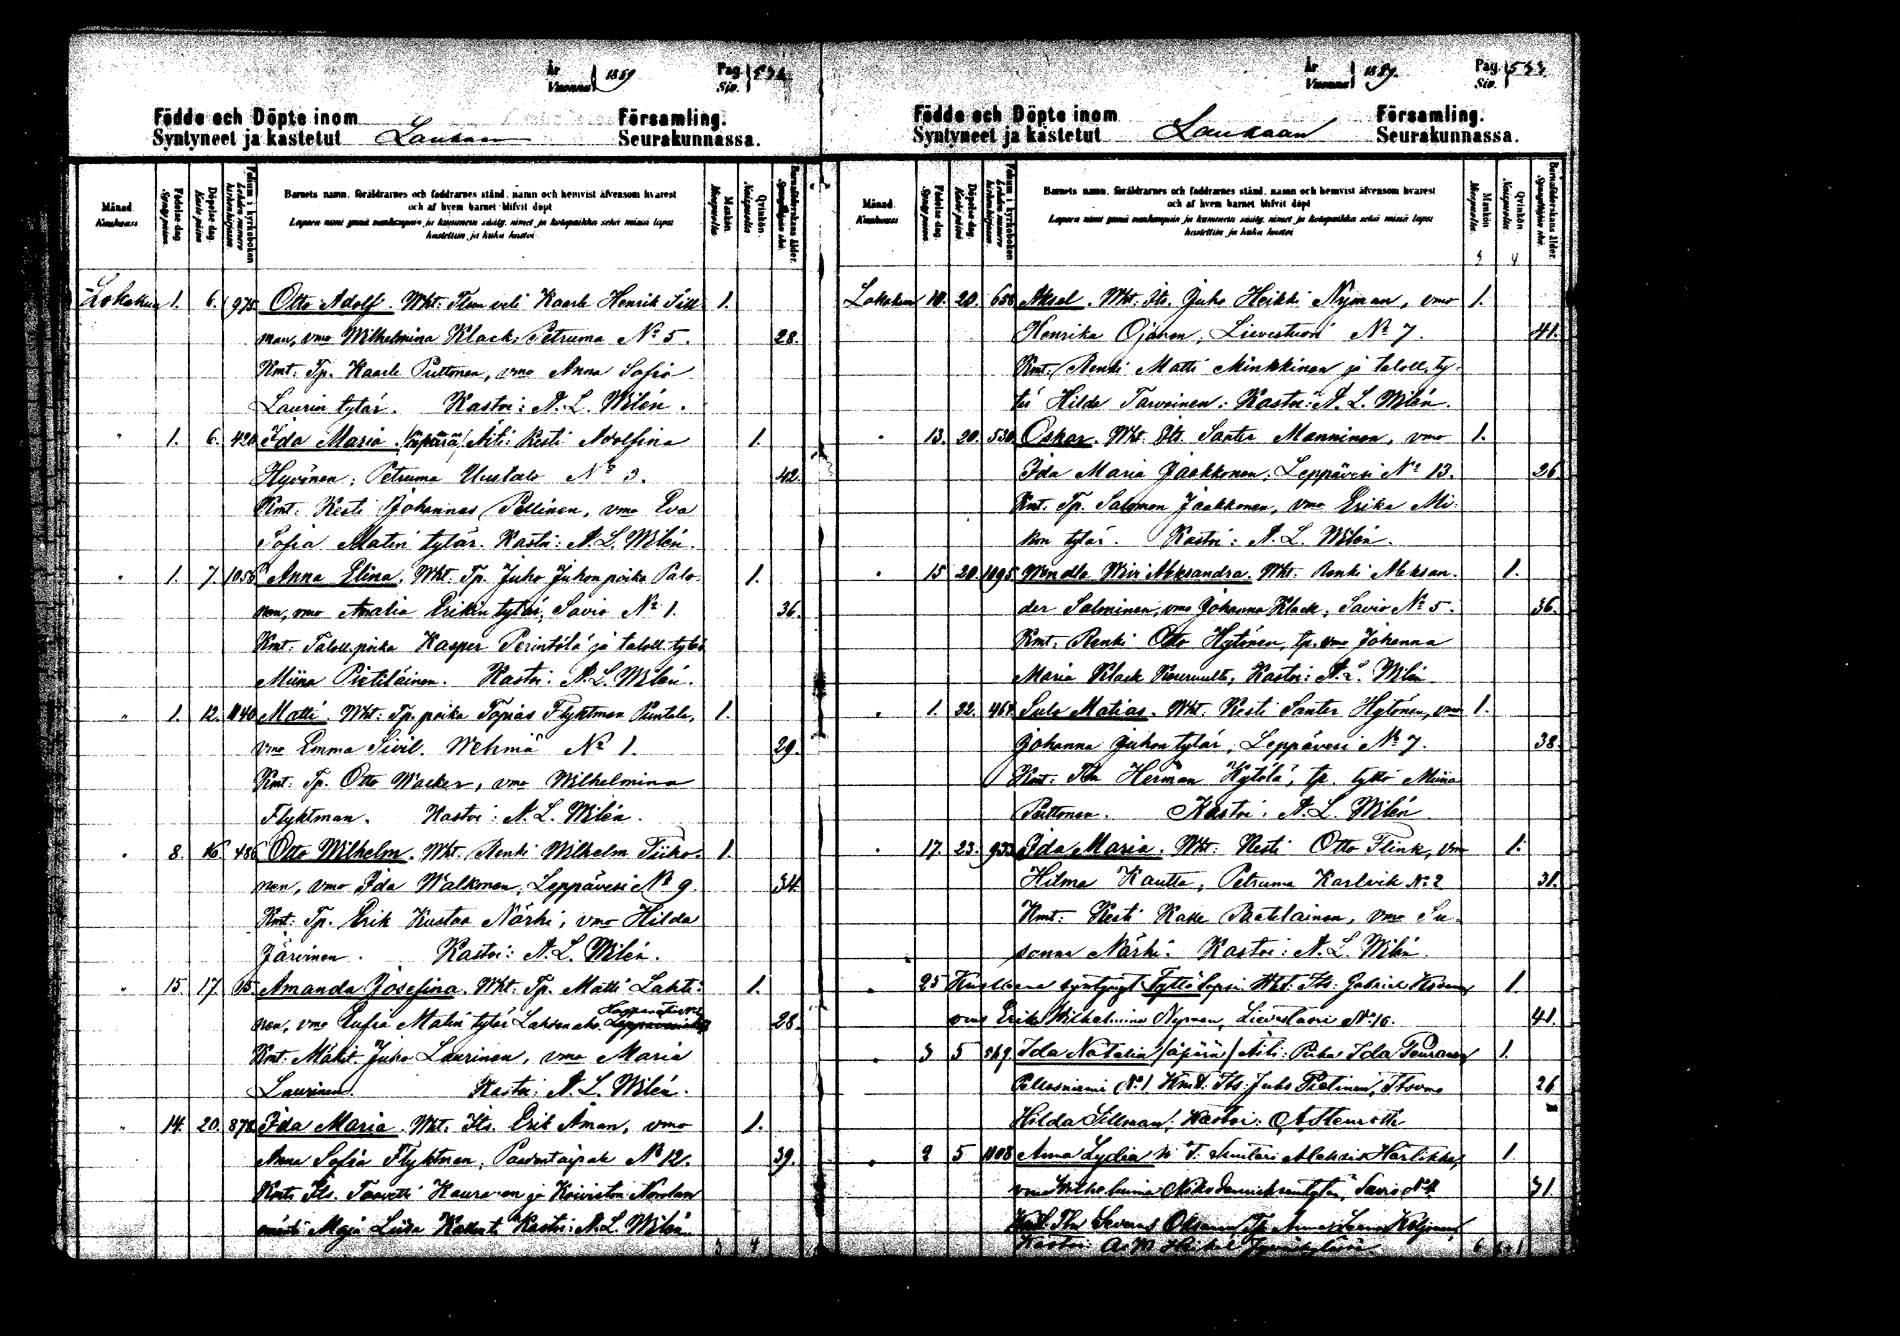 År
Vuonna 1889
Pag.
Siv. 532
Födde och Döpte inom Församling.
Syntyneet ja kastetut Laukaan Seurakunnassa.
Månad. Kuukausi
Födelse-dag. Syntypäivä
Döpelse-dag. Kaste-päivä
Barnets namn, föräldrarnes och faddrarnes stånd, namn och hemvist äfvensom hvarest
och af hvem barnet blifvit döpt
Lapsen nimi ynnä vanhempain ja kummien sääty, nimet ja kotopaikka sekä missä lapsi
kastettiin ja kuka kastoi
Mankön. Miespuolia.
Qvinkön. Naispuolia
Barnaföderskans ålder.
Lokakuu 1. 6. 975 Otto Adolf. Wht: Tlon veli Kaarle Henrik Sill- 1.
man, vmo Wilhelmina Klack; Petruma No 5. 28.
Kmt: Tp. Kaarle Puttonen, vmo Anna Sofia
Laurin tytär. Kastoi: A. L. Wilén.
" 1. 6. 420 Ida Maria. /äpärä/ Äiti: Kesti Adolfina 1.
Hyvönen; Petruma Uusitalo No 3. 42.
Kmt: Kesti Johannas Pellinen, vmo Eva
Sofia Matin tytär. Kastoi: A. L. Wilén.
" 1. 7. 1055 Anna Elina. Wht. Tp. Juho Juhon poika Palo- 1.
nen, vmo Amalia Erikin tytär, Savio No 1. 36.
Kmt: Taloll. poika Kasper Perintölä ja taloll. tytär
Miina Pietiläinen. Kastoi: A. L. Wilén.
" 1. 12. 1140 Matti. Wht: Tp. poika Topias Flyktman Puntala, 1.
vmo Emma Sivil. Wehniä No 1. 29.
Kmt: Tp. Otto Wacker, vmo Wilhelmina
Flyktman. Kastoi: A. L. Wilén.
" 8. 16. 486 Otto Wilhelm. Wht. Renki Wilhelm Tiiho- 1.
nen, vmo Ida Walkonen, Leppävesi No 9. 34.
Kmt: Tp. Erik Kustaa Närhi, vmo Hilda
Järvinen. Kastoi: A. L. Wilén.
" 15. 17. 15 Amanda Josefina. Wht: Tp. Matti Lahti- 1.
nen, vmo Eufia Matin tytär Lahden aho. 28.
Kmt: Mäkit. Juho Laurinen, vmo Maria
Laurinen. Kastoi: A. L. Wilén.
" 14. 20. 878 Ida Maria. Wht. Its. Erik Åman, vmo 1.
Anna Sofia Flyktman; No 12. 39.
Kmt: Its. Taavetti Kauranen ja Koiviston
Maja Liisa Kastoi: A. L. Wilén.
3 4
År
Vuonna 1889.
Pag.
Siv. 533
Födde och Döpte inom Församling.
Syntyneet ja kastetut Laukaan Seurakunnassa.
Månad. Kuukausi
Födelse-dag. Syntypäivä
Döpelse-dag. Kaste-päivä
Barnets namn, föräldrarnes och faddrarnes stånd, namn och hemvist äfvensom hvarest
och af hvem barnet blifvit döpt
Lapsen nimi ynnä vanhempain ja kummien sääty, nimet ja kotopaikka sekä missä lapsi
kastettiin ja kuka kastoi
Mankön. Miespuolia.
Qvinkön. Naispuolia
Barnaföderskans ålder.
3 4
Lokakuu 10. 20. 658 Aksel. Wht: Its. Juho Heikki Nyman, vmo 1.
Henrika Ojanen, Lievestuori No 7. 41.
Kmt: Renki Matti Minkkinen ja taloll. ty-
tär Hilda Tarvainen. Kastoi: A. L. Wilén.
" 13. 20. 530 Oskar. Wht. Its. Santer Manninen, vmo 1.
Ida Maria Jaakkonen; Leppävesi No 13. 26.
Kmt. Tp. Salomon Jaakkonen, vmo Erika Mi-
kon tytär. Kastoi: A. L. Wilén.
" 15 20. 1095 Wendla Wiivi Aleksandra. Wht. Renki Aleksan- 1.
der Salminen, vmo Johanna Klack, Savio No 5. 36.
Kmt. Renki Otto Hytönen, tp. vmo Johanna
Maria Klack Kastoi: A. L. Wilén
" 1. 22. 464 Sulo Matias. Wht. Kesti Santer Hytönen, vmo 1.
Johanna Juhon tytär, Leppävesi No 7. 38.
Kmt: Tln Herman Hytölä, tp. tyttö Miina
Puttonen. Kastoi: A. L. Wilén.
" 17. 23. 933 Ida Maria. Wht: Kesti Otto Flink, vmo 1.
Hilma Kautto, Petruma Karlvik No 2 31.
Kmt: Kesti Kalle Paatelainen, vmo Su-
sanna Närhi. Kastoi: A. L. Wilén.
" 25 Kuolleena syntynyt Tyttölapsi. Wht. Its: Gabriel 1.
vmo Erika Wilhelmina Nyman, Lievestuori No 16. 41.
" 3 5 569. Ida Natalia /äpärä/ Äiti: Piika Ida 1.
Pellosniemi No 1. Kmt. Its: Juho Pietinen, Its vmo 26
Hilda Sillman. Kastoi: A. Stenroth
" 2 5 1108 Anna Lydia 1.
vmo Wilhelmina Savio No 4 31
Kmt. Tln
Kastoi:
6